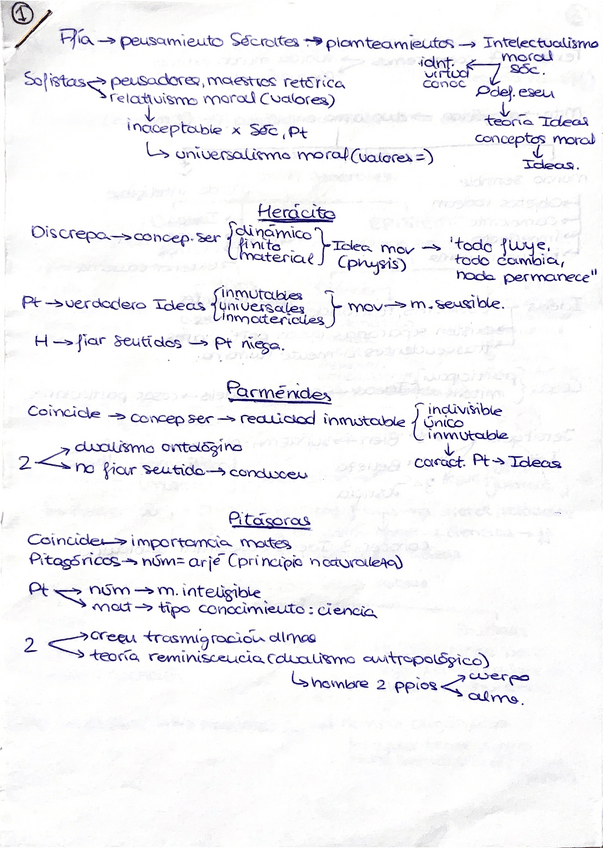 1
Pfía → pensamiento Sócrates → planteamientos → Intelectualismo
moral
sóc.
ident.
virtud
conoc
→ def. esen
Sofistas → pensadores, maestros retórica
→ relativismo moral (valores)
teoría Ideas
conceptos moral
inaceptable x Sóc, Pt
↳ universalismo moral (valores =)
Ideas.
Herácito
Discrepa → concep. ser { dinámico
finito
material } Idea mov → "todo fluye,
(physis)
todo cambia,
nada permanece"
Pt → verdadero Ideas { inmutables
universales
inmateriales } mov → m. sensible.
H → fiar sentidos → Pt niega.
Parménides
Coincide → concep ser → realidad inmutable { indivisible
único
inmutable
2 → dualismo ontológino
→ no fiar sentido → conducen
caract. Pt → Ideas
Pitágoras
Coincide → importancia mates
Pitagóricos → núm = arjé (principio naturaleza)
Pt → núm → m. inteligible
→ mat → tipo conocimiento: ciencia
2 → creen trasmigración almas
→ teoría reminiscencia (dualismo antropológico)
↳ hombre 2 ppios → cuerpo
→ alma.